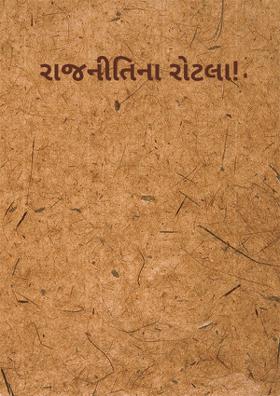 રાજનીતિના રોટલા!